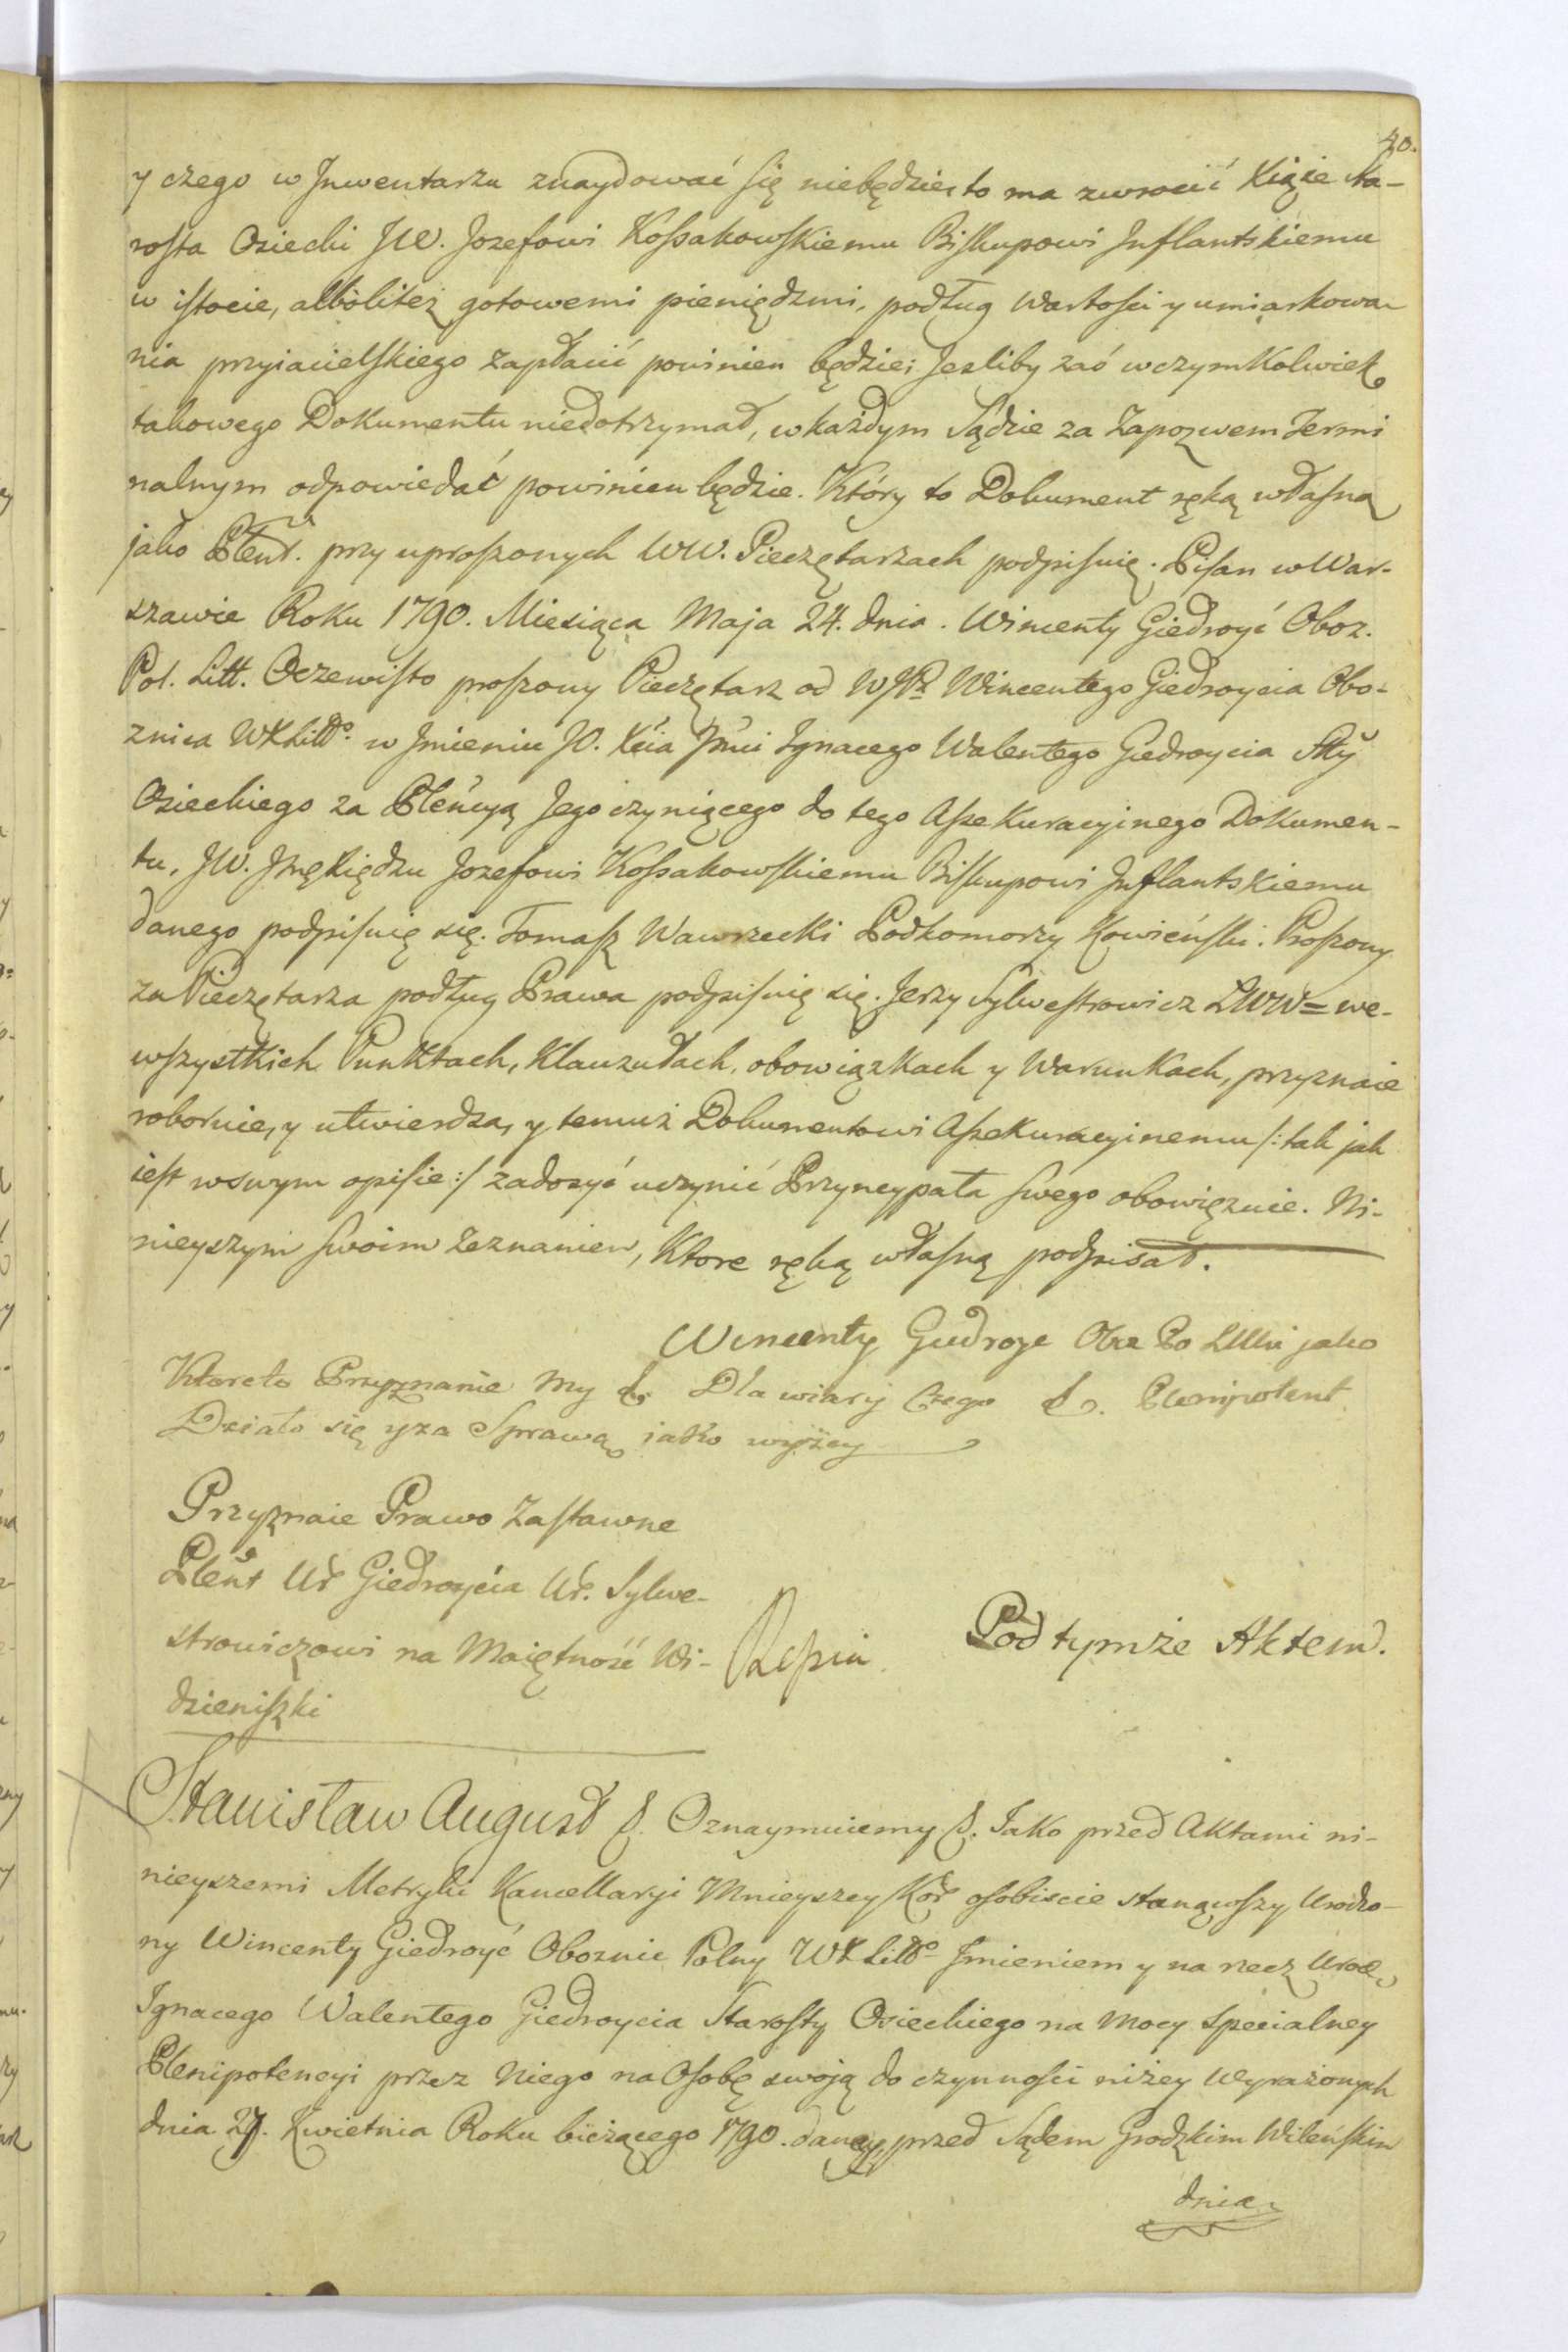 40.
y czego w Inwentarzu znaydować się niebędzie, to ma zwrocić Xiąże Sta-
rosta Osiecki JW. Jozefowi Kossakowskiemu Biskupowi Inflantskiemu
w istocie, albolitéż gotowemi pieniędzmi, podług Wartości y umiarkowa-
nia przyiacielskiego zapłacić powinien będzie; Jesliby zaś wczymKolwiek
takowego Dokumentu niedotrzymał, wkażdym Sądzie za Zapozwem Termi
nalnym odpowiedać powinien będzie. Który to Dokument ręką własną
jako Plent. przy uproszonych WW. Pieczętarzach podpisuię. Pisan w War-
szawie Roku 1790. Miesiąca Maja 24. dnia. Wincenty Giedroyć Oboz.
Pol. Litt. Oczewisto proszony Pieczętarz od WJP. Wincentego Giedroycia Obo-
znica WXLitt. w Jmieniu JO. Xcia Jmci Ignacego Walentego Giedroycia Stty
Osieckiego za Pleńcyą Jego czyniącego do tego Assekuracyinego Dokumen-
tu, JW. Jmę Xiędzu Jozefowi Kossakowskiemu Biskupowi Inflantskiemu
danego podpisuię się. Tomasz Wawrzecki Podkomorzy Kowieński. Proszony
za Pieczętarza podług Prawa podpisuię się. Jerzy Sylwestrowicz LWW= we-
wszystkich Punktach, Klauzułach, obowiązkach y Warunkach, przyznaie
roboruie, y utwierdza, y temuż Dokumentowi Assekuracyinemu /: tak jak
iest wswym opisie :/ zadosyć uczynić Pryncypała swego obowięzuie. Ni-
nieyszym swoim zeznaniem, Ktore ręką własną podpisał.
Wincenty Giedroyc Obz Po jako
Ktoreto Przyznanie My Dla wiary Czego Plenipotent
Działo się yza Sprawą jako wyżey
Przyznaie Prawo Zastawne
Pleńt Ur Giedroycia Ur. Sylwe-
strowiczowi na Maiętność Wi-
dzieniszki
Pod tymże Aktem.
Stanisław August &. Oznaymuiemy &. Jako przed Aktami ni-
nieyszemi Metryki Kancellaryi Mnieyszey Kor osobiscie stanąwszy Urodzo-
ny Wincenty Giedroyć Oboznic Polny WXLitt Jmieniem y na rzecz Urodz.
Ignacego Walentego Giedroycia Starosty Osieckiego na Mocy specialney
Plenipotencyi przez Niego na Osobę swoją do czynności niżey Wyrażonych
dnia 27. Kwietnia Roku bieżącego 1790. daney, przed Sądem Grodzkim Wileńskim
dnia